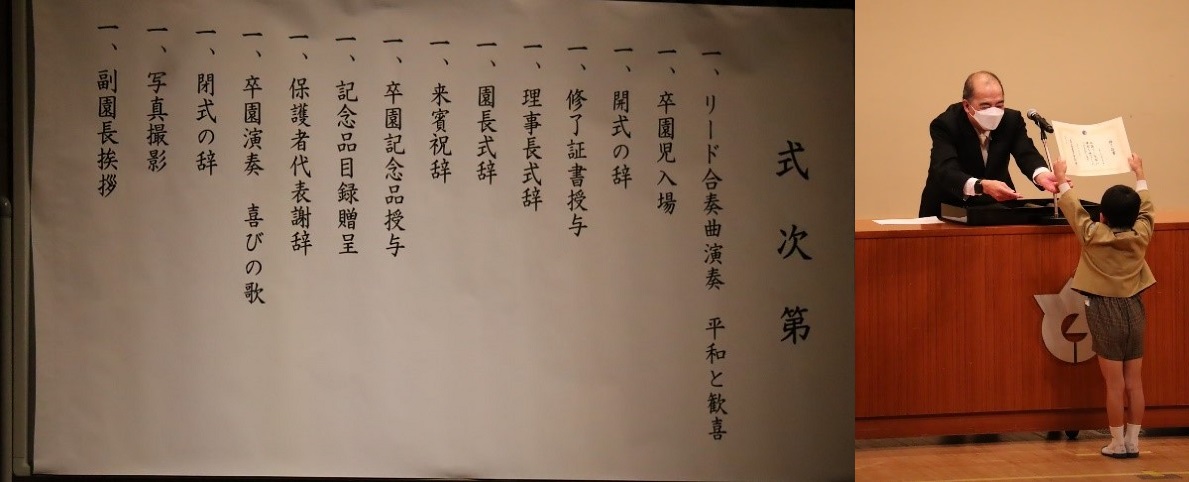 式次第
一、リード合奏曲演奏 平和と歓喜
一、卒園児入場
一、開式の辞
一、修了証書授与
一、理事長式辞
一、園長式辞
一、来賓祝辞
一、卒園記念品授与
一、記念品目録贈呈
一、保護者代表謝辞
一、卒園演奏 喜びの歌
一、閉式の辞
一、写真撮影
一、副園長挨拶